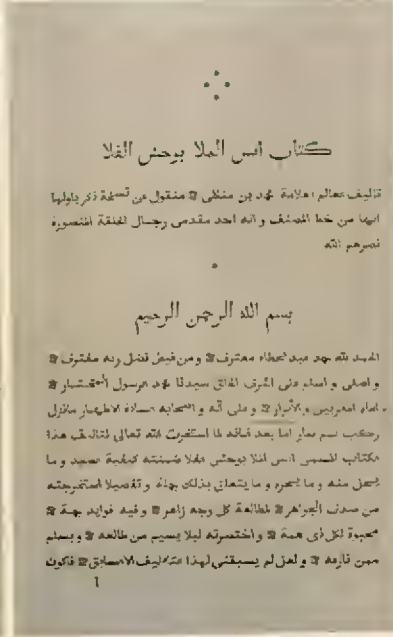 كتاب انس الملا بوحش الفلا
تاليف العالم العلامة محمد بن منكلى منقول من نسخة ذكر باولها
انها من خط المصنف وانه احد مقدمى رجال الحلقة المنصورة
نصرهم الله
بسم الله الرحمن الرحيم
الحمد لله حمد عبد بخطاه معترف ومن فيض فضل ربه مغترف
واصلى واسلم على اشرف الخلق سيدنا محمد الرسول المختار
امام المقربين والأبرار وعلى آله واصحابه السادة الاطهار ما نزل
ركب سار اما بعد فانه لما استخرت الله تعالى فى تاليف هذا
الكتاب المسمى انس الملا بوحش الفلا ضمنته كيفية الصيد وما
يحل منه وما يحرم وما يتعلق بذلك جملة وتفصيلا استخرجته
من صدف الجواهر لمطالعة كل وجه زاهر وفيه فوايد جمة
محبوبة لكل ذى همة واختصرته ليلا يسيم من طالعه ويسلم
ممن قارعه ولعل لم يسبقنى لهذا التاليف الاسابق فاكون
1